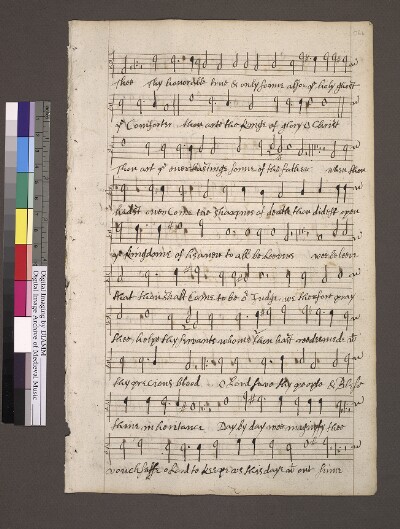 thee thy honorable true & only sonne also ye holy ghost
ye Comforter thou arte the kinge of glory O Christ
Thou art ye everlastinge sonne of the father when thou
hadst overcome the sharpnes of death thou didst open
ye kingdome of heaven to all beleevers wee beleeve
that thou shalt come to be o{r} Judge. we therfore pray
thee helpe thy servants whome thou hast redeemed wt
thy precious blood O Lord save thy people & blesse
thine inheritance Day by day wee magnify thee
vouchsaffe o Lord to keepe us this day wt out sinne
Digital Imaging by DIAMM
Digital Image Archive of Medieval Music